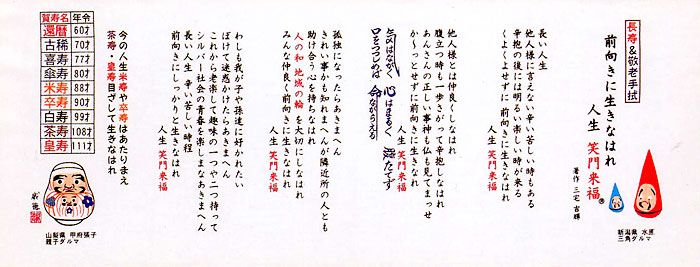 長寿&敬老手拭
前向きに生きなはれ
人生 笑門来福®
著作 三宅 吉輝
新潟県 水原
三角ダルマ
長い人生
他人様に言えない辛い苦しい時もある
辛抱の後には明るい楽しい時が来る
くよくよせずに前向きに生きなはれ
人生 笑門来福
他人様とは仲良くしなはれ
腹立つ時も一歩さがって辛抱しなはれ
あんさんの正しい事神も仏も見てまっせ
か〜っとせずに前向きに生きなはれ
人生 笑門来福
気はながく 心はまるく 腹たてず
口をつつしめば 命ながらえる
孤独になったらあきまへん
きれい事かも知れまへんが隣近所の人とも
助け合う心を持ちなはれ
人の和 地域の輪 を大切にしなはれ
みんな仲良く前向きに生きなはれ
人生 笑門来福
わしも我が子や孫達に好かれたい
ぼけて迷惑かけたらあきまへん
これから老楽して趣味の一つや二つ持って
シルバー社会の青春を楽しまなあきまへん
長い人生 辛い苦しい時程
前向きにしっかりと生きなはれ
人生 笑門来福
今の人生米寿や卒寿はあたりまえ
茶寿・皇寿目ざして生きなはれ
賀寿名 年令
還暦 60才
古稀 70才
喜寿 77才
傘寿 80才
米寿 88才
卒寿 90才
白寿 99才
茶寿 108才
皇寿 111才
山梨県 甲府張子
親子ダルマ